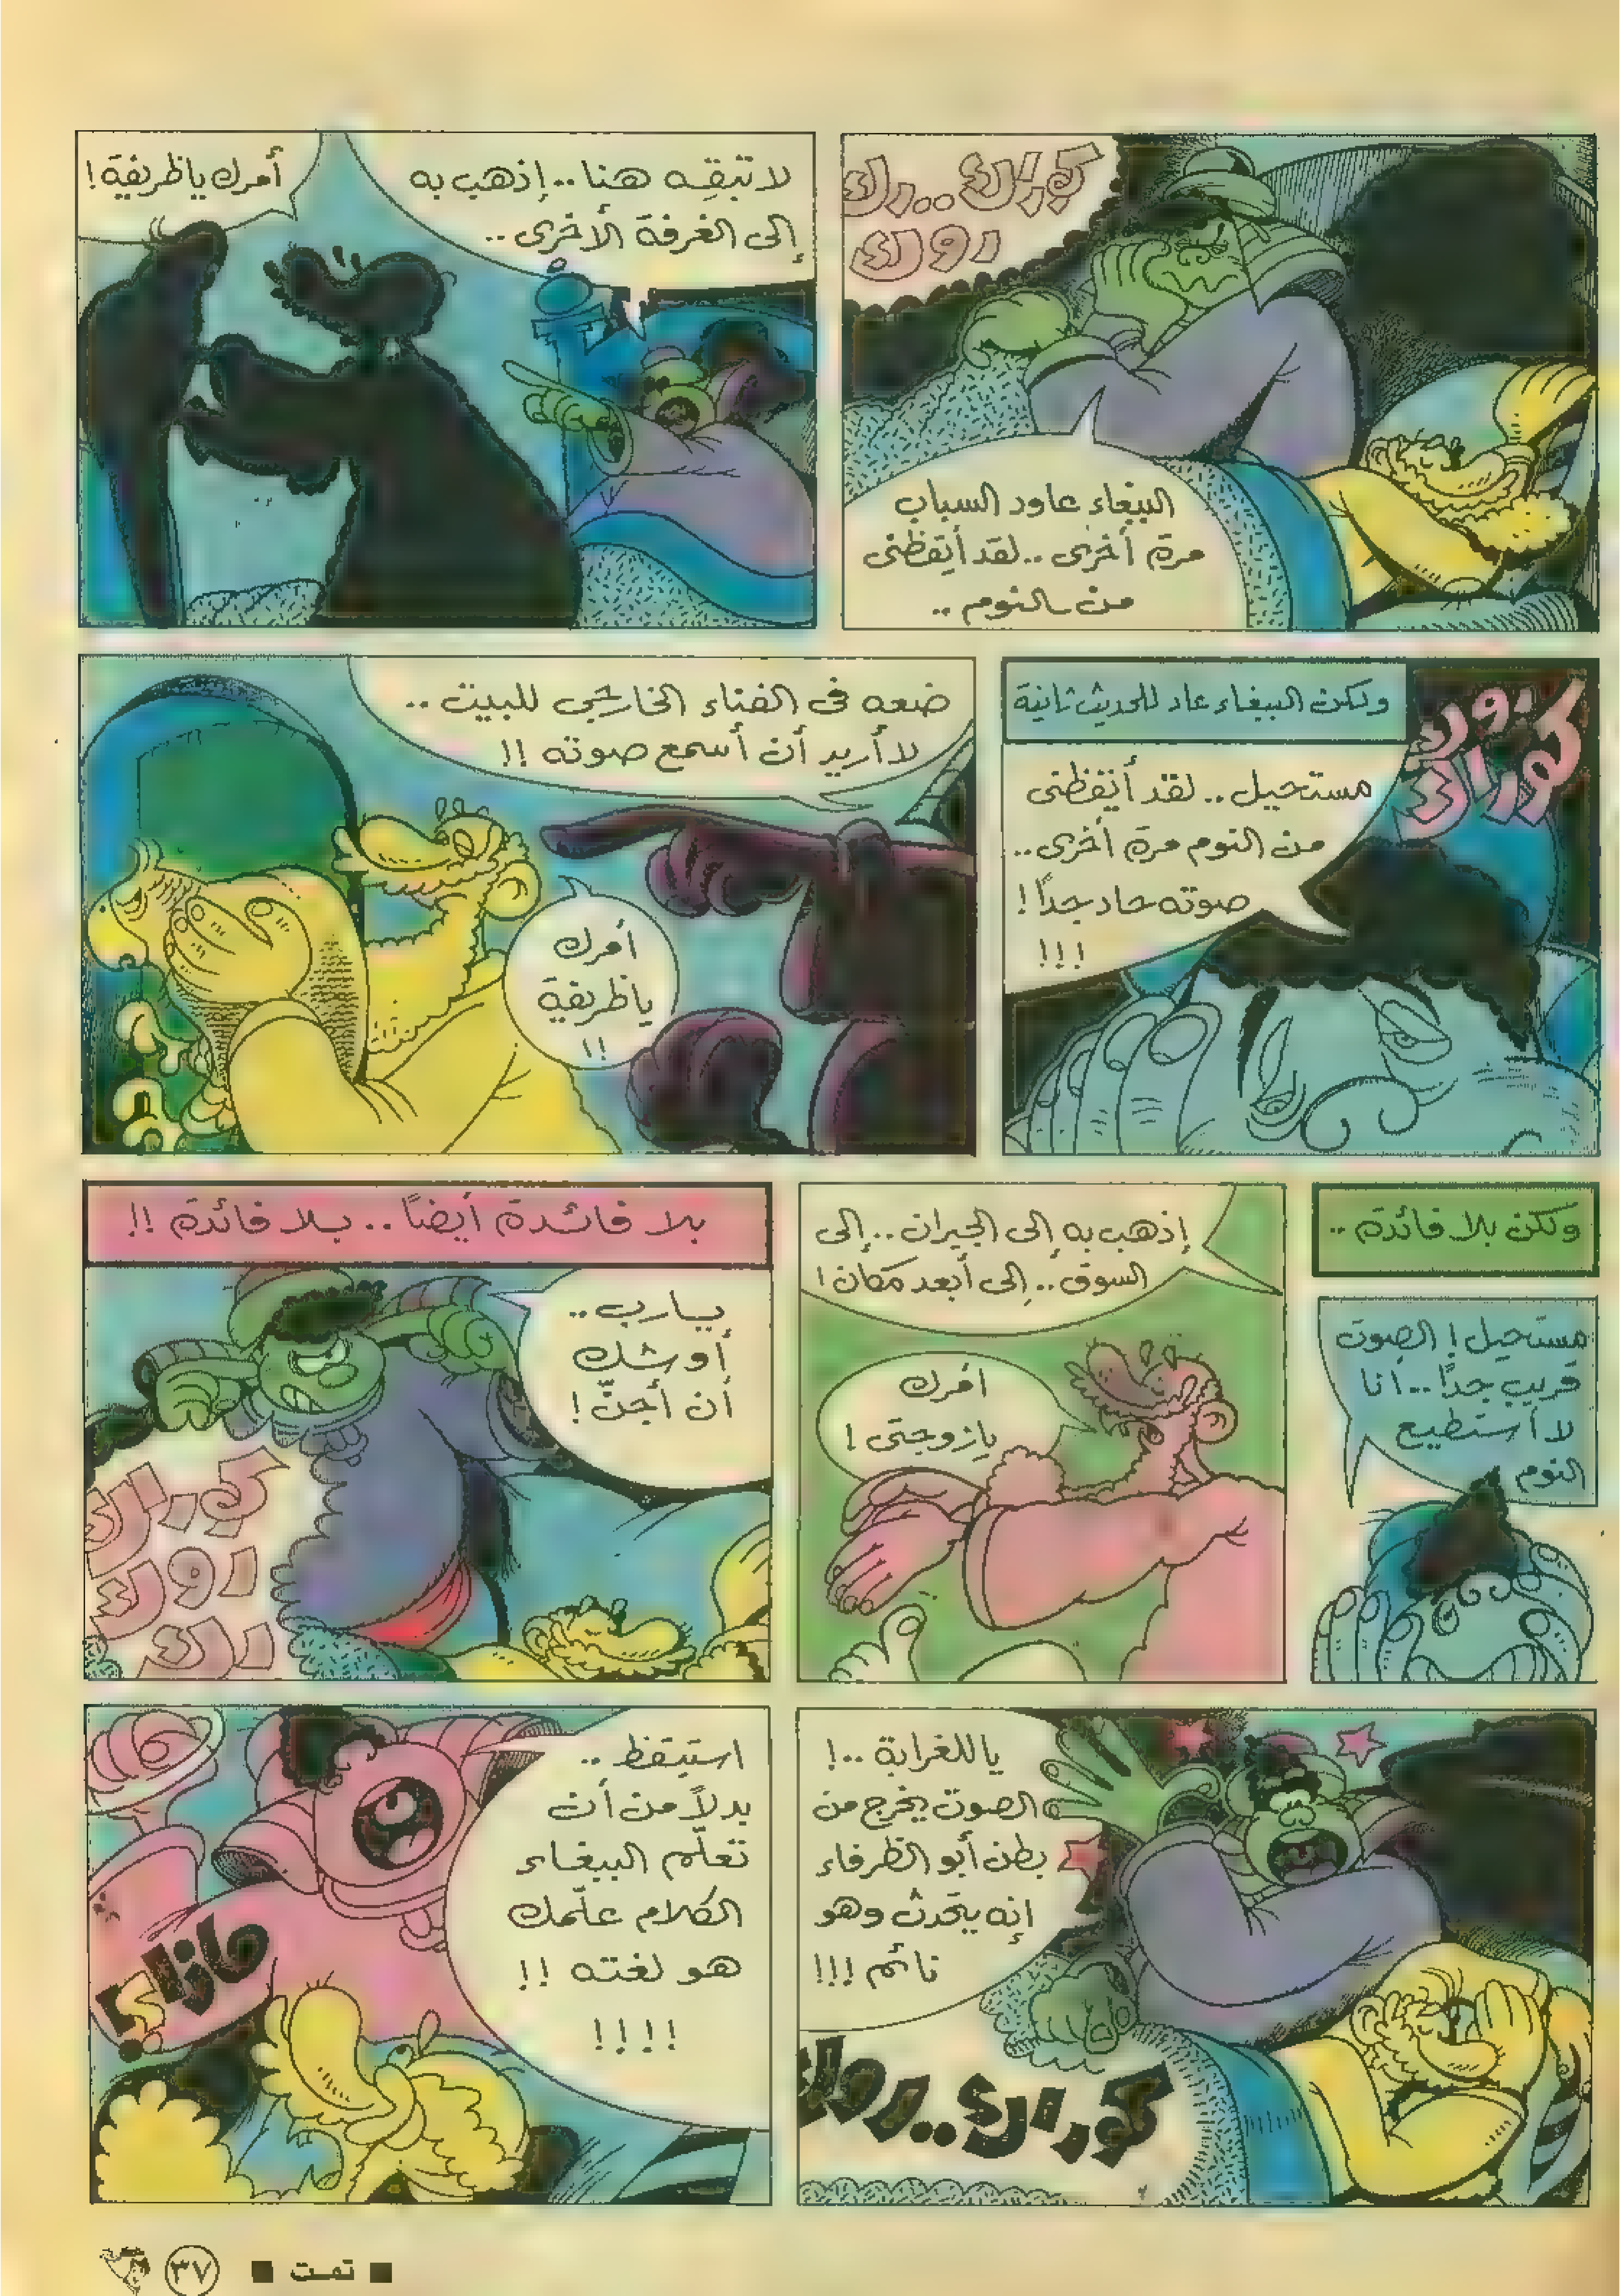 كوراك..رك
روك
الببغاء عاود السباب
مرة أخرى..لقد أيقظنى
من النوم..
لا تبقِه هنا..إذهب به
إلى الغرفة الأخرى..
أمرك ياظريفة!
ولكن الببغاء عاد للحديث ثانية
روك
كوراك
مستحيل..لقد أيقظنى
من النوم مرة أخرى..
صوته حاد جداً!
!!!
ضعه فى الفناء الخارجي للبيت..
لا أريد أن أسمع صوته!!
أمرك
ياظريفة
!!
ولكن بلا فائدة..
مستحيل! الصوت
قريب جداً..أنا
لا أستطيع
النوم
إذهب به إلى الجيران..إلى
السوق..إلى أبعد مكان!
أمرك
يازوجتى!
بلا فائدة أيضاً..بلا فائدة!!
يارب..
أوشك
أن أجنّ!
كوراك
روك
راك
ياللغرابة..!
الصوت يخرج من
بطن أبو الظرفاء
إنه يتحدث وهو
نائم!!!
كوراك..روك
استيقظ..
بدلاً من أن
تعلّم الببغاء
الكلام علّمك
هو لغته!!
!!!!
ماذا؟!
■ تمت ■ ٣٧